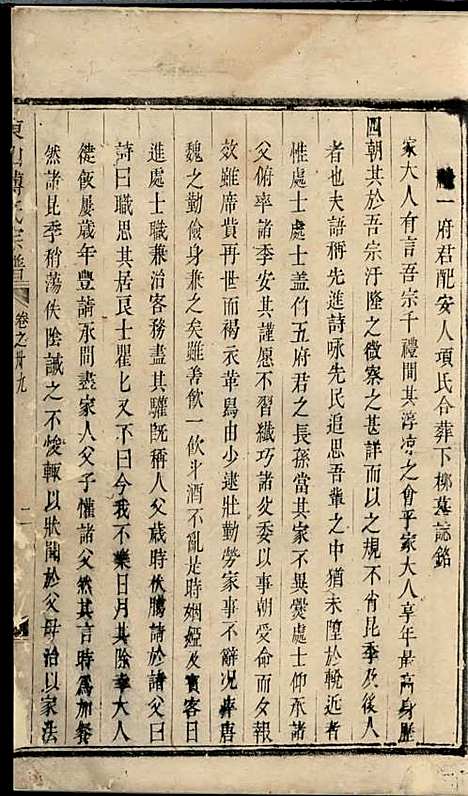 一府君配安人項氏合葬下柳墓誌銘
家大人有言吾宗千禮間其淳凉之會乎家大人享年最高身歷
四朝其於吾宗汙隆之微察之甚詳而以之規不肖昆季及後人
者也夫語稱先進詩咏先民追思吾輩之中猶未墮於輓近者
惟處士處士盖伯五府君之長孫當其家不異爨處士仰承諸
父俯率諸季安其謹愿不習纖巧諸父委以事朝受命而夕報
效雖席貲再世而褐衣革舃由少逮壯勤勞家事不辭况瘁唐
魏之勤儉身兼之矣雖善飲一飲斗酒不亂是時姻婭及賓客日
進處士職兼治客務盡其驩旣稱人父歲時伏臘請於諸父曰
詩曰職思其居良士瞿七又不曰今我不樂日月其除幸大人
徙飯屢歲年豐請承間盡家人父子懽諸父然其言時爲加餐
然諸昆季稍蕩佚陰誡之不悛輙以狀聞於父母治以家法
東山傅氏宗譜
卷之卅九
二